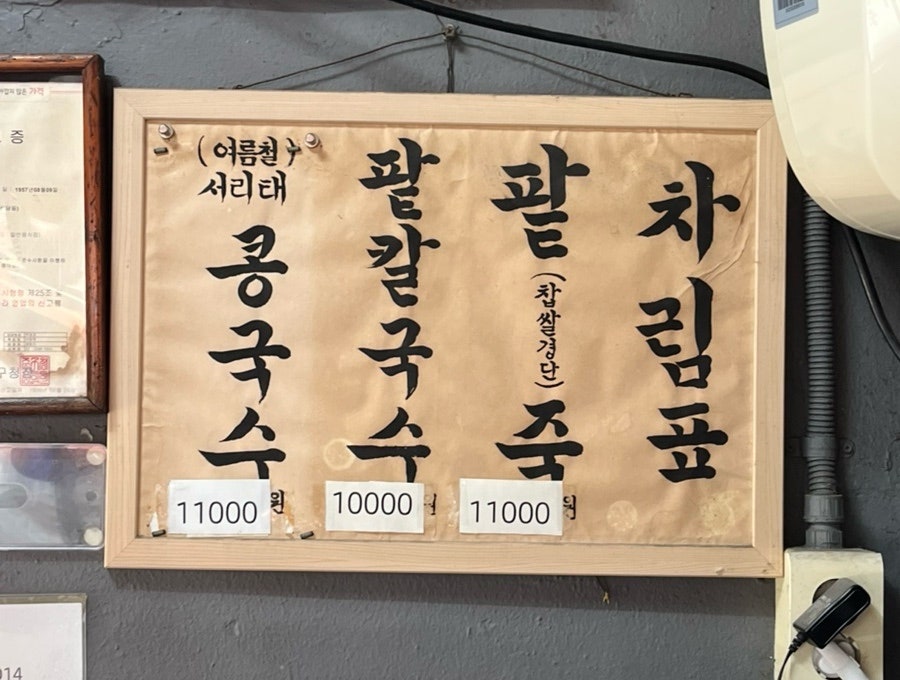 차림표
팥(찹쌀경단)죽
11000원
팥칼국수
10000원
(여름철)
서리태
콩국수
11000원
증
1957년08월09일
제25조 및
구청장
014